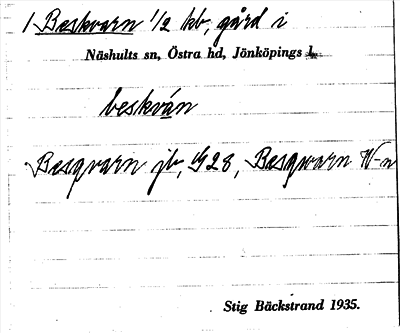 1 Beskvarn 1/2 kb, gård i
Näshults sn, Östra hd, Jönköpings l.
beskván
Besqvarn jb, 28, Besqwarn W-n
Stig Bäckstrand 1935.